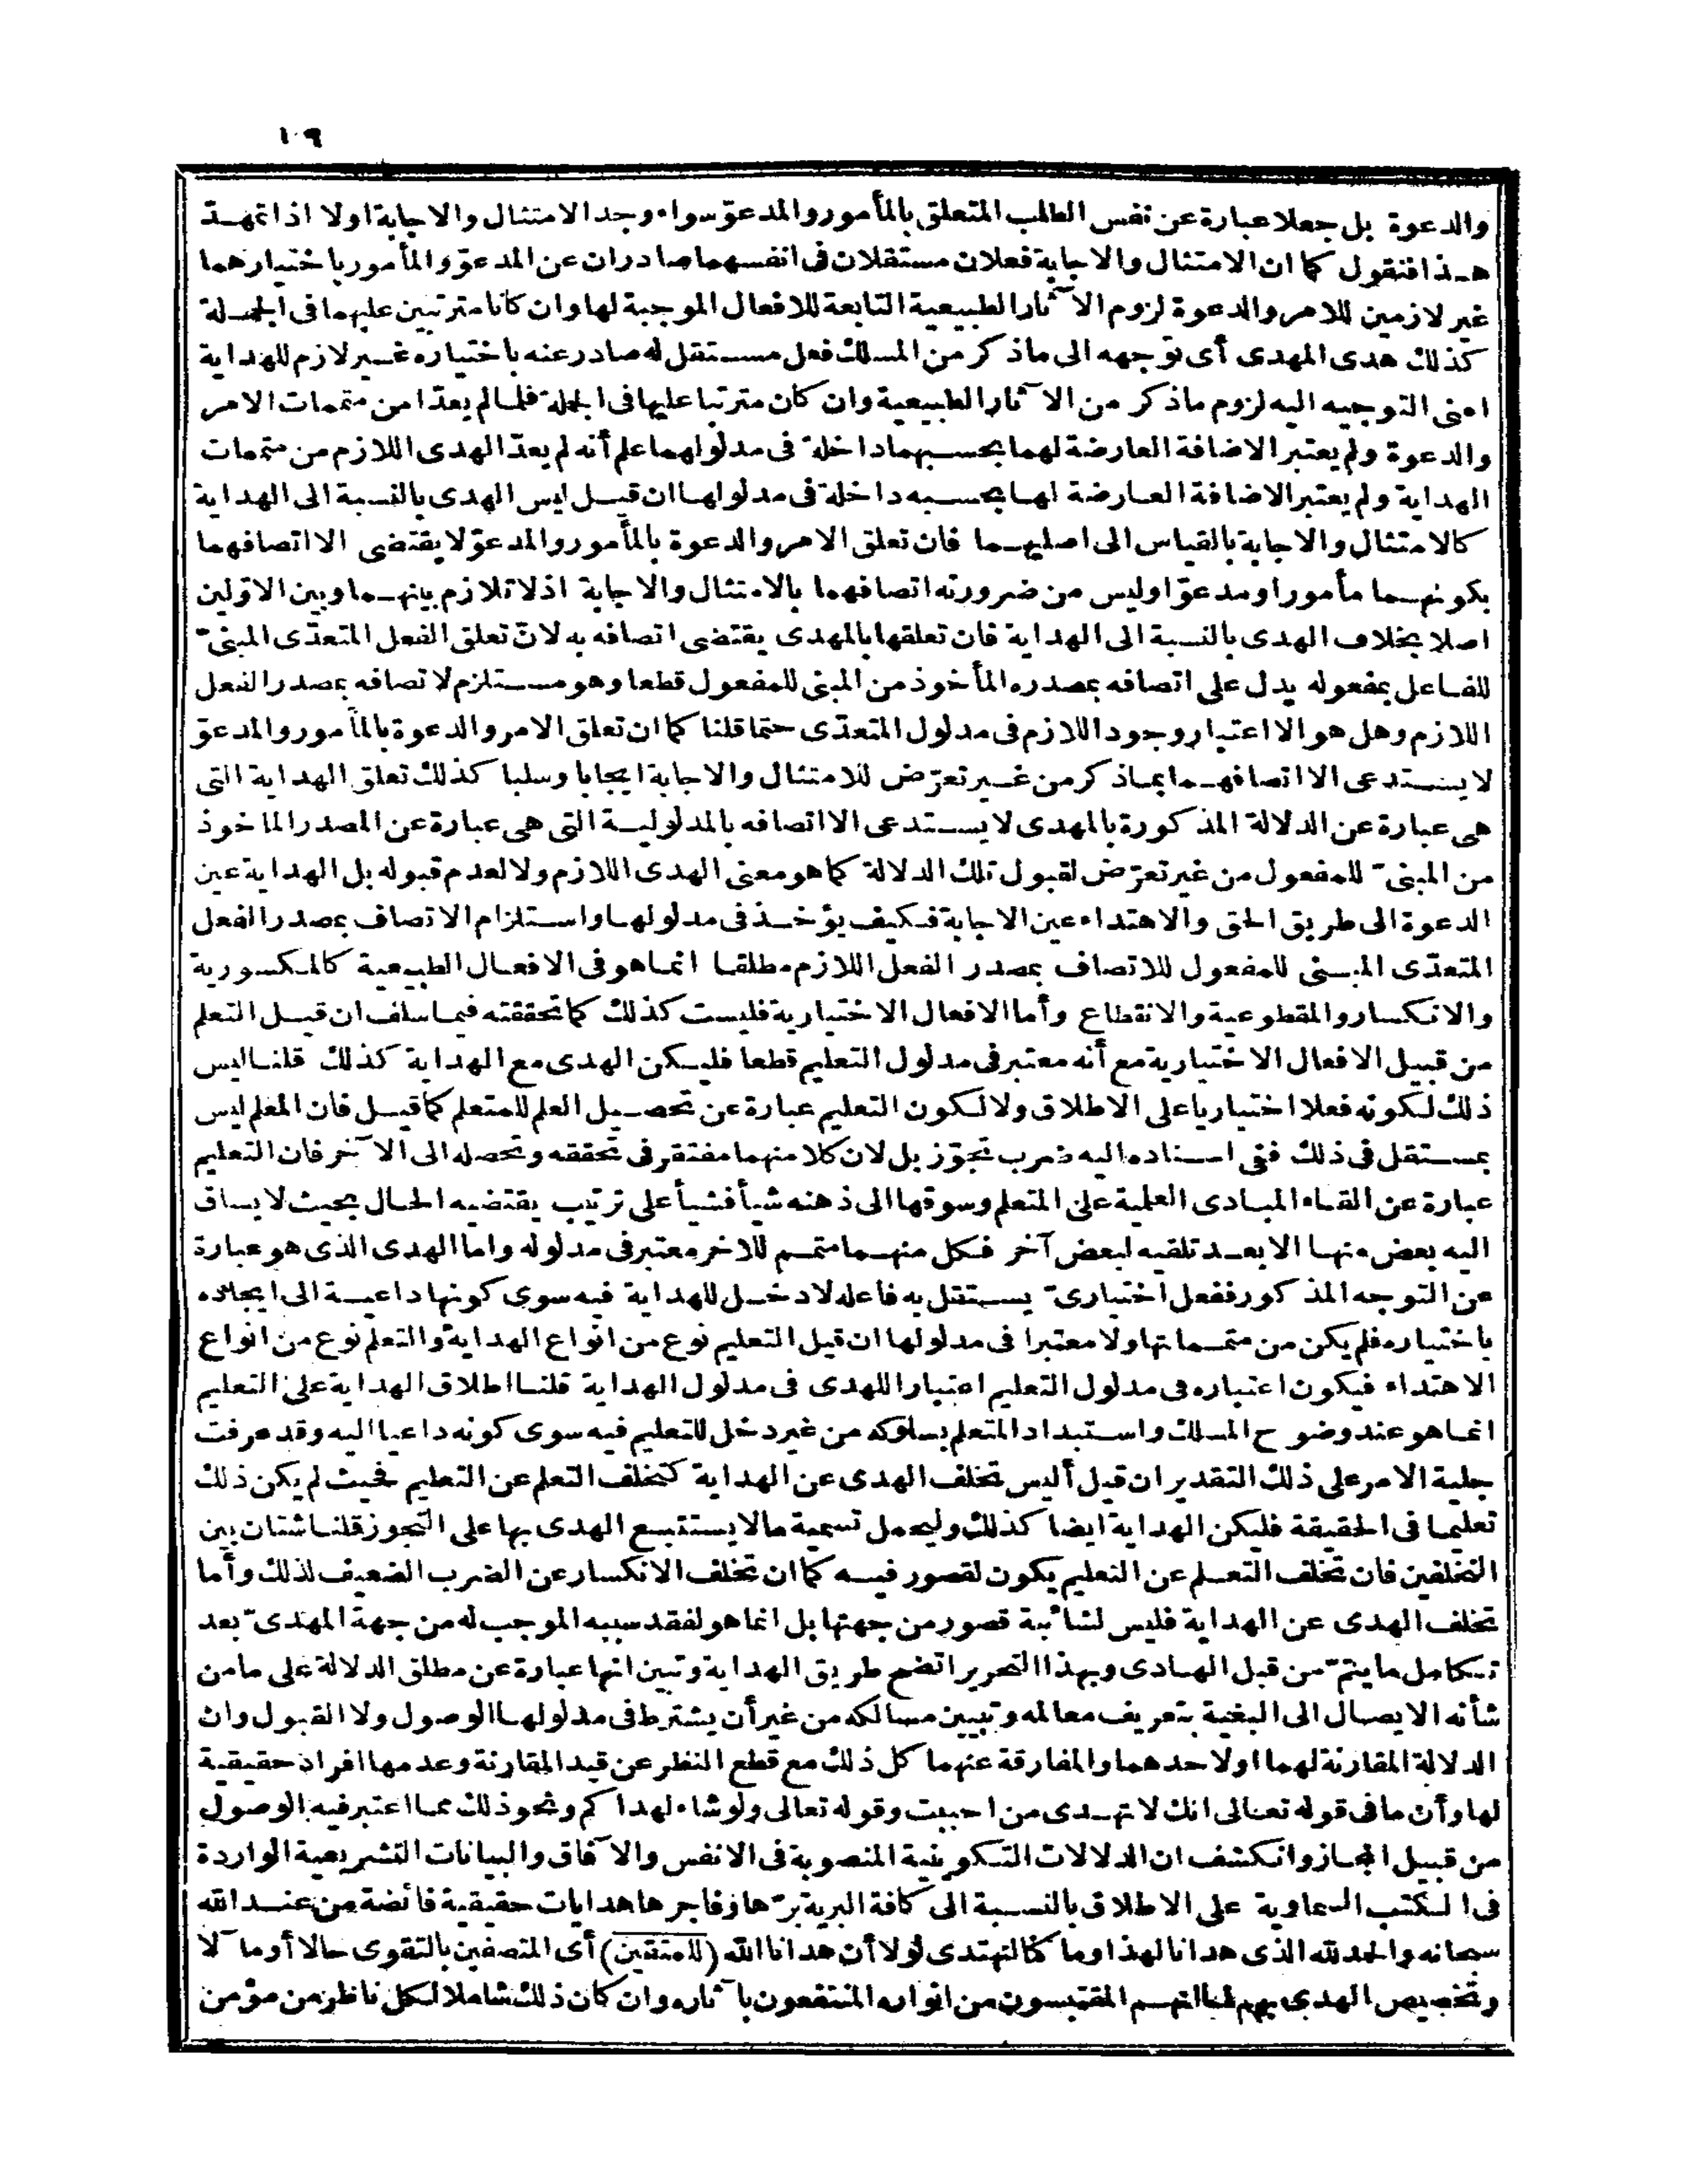 ١٠٩
والدعوة بل جعلا عبارة عن نفس الطلب المتعلق بالمأمور والمدعوّ سواء وجد الامتثال والاجابة اولا اذا تمهـدّ
هـذا فنقول كما ان الامتثال والاجابة فعلان مستقلان فى انفسهما صادران عن المدعوّ والمأمور باختيارهما
غير لازمين للامر والدعوة لزوم الآثار الطبيعية التابعة للافعال الموجبة لها وان كانا مترتبين عليهما فى الجملة
كذلك هدى المهدى أى توجهه الى ماذكر من المسلك فعل مستقل له صادر عنه باختياره غير لازم للهداية
اعنى التوجيه اليه لزوم ماذكر من الآثار الطبيعية وان كان مترتبا عليها فى الجملة فلما لم يعدّا من متممات الامر
والدعوة ولم يعتبر الاضافة العارضة لهما بحسبهما داخلة فى مدلولهما علم أنه لم يعدّ الهدى اللازم من متممات
الهداية ولم يعتبر الاضافة العارضة لها بحسبه داخلة فى مدلولها ان قيل ليس الهدى بالنسبة الى الهداية
كالامتثال والاجابة بالقياس الى اصليهما فان تعلق الامر والدعوة بالمأمور والمدعوّ لا يقتضى الا اتصافهما
بكونهما مأمورا ومدعوّا وليس من ضرورته اتصافهما بالامتثال والاجابة اذ لا تلازم بينهما وبين الاوّلين
اصلا بخلاف الهدى بالنسبة الى الهداية فان تعلقها بالمهدى يقتضى اتصافه به لانّ تعلق الفعل المتعدّى المبنىّ
للفاعل بمفعوله يدل على اتصافه بمصدره المأخوذ من المبنى للمفعول قطعا وهو مستلزم لاتصافه بمصدر الفعل
اللازم وهل هو الا اعتبار وجود اللازم فى مدلول المتعدّى حتما قلنا كما ان تعلق الامر والدعوة بالمأمور والمدعوّ
لا يستدعى الا اتصافهما بما ذكر من غير تعرّض للامتثال والاجابة ايجابا وسلبا كذلك تعلق الهداية التى
هى عبارة عن الدلالة المذكورة بالمهدى لا يستدعى الا اتصافه بالمدلولية التى هى عبارة عن المصدر الماخوذ
من المبنىّ للمفعول من غير تعرّض لقبول تلك الدلالة كما هو معنى الهدى اللازم ولا لعدم قبوله بل الهداية عين
الدعوة الى طريق الحق والاهتداء عين الاجابة فكيف يؤخذ فى مدلولها واستلزام الاتصاف بمصدر الفعل
المتعدّى المبنى للمفعول للاتصاف بمصدر الفعل اللازم مطلقا انما هو فى الافعال الطبيعية كالمكسورية
والانكسار والمقطوعية والانقطاع وأما الافعال الاختيارية فليست كذلك كما تحققته فيما سلف ان قيل التعلم
من قبيل الافعال الاختيارية مع أنه معتبر فى مدلول التعليم قطعا فليكن الهدى مع الهداية كذلك قلنا ليس
ذلك لكونه فعلا اختياريا على الاطلاق ولا لكون التعليم عبارة عن تحصيل العلم للمتعلم كما قيل فان المعلم ليس
بمستقل فى ذلك ففى اسناده اليه ضرب تجوّز بل لان كلا منهما مفتقر فى تحققه وتحصله الى الآخر فان التعليم
عبارة عن القاء المبادى العلمية على المتعلم وسوقها الى ذهنه شيأ فشيأ على ترتيب يقتضيه الحال بحيث لا يساق
اليه بعض منها الا بعد تلقيه لبعض آخر فكل منهما متمم للاخر معتبر فى مدلوله واما الهدى الذى هو عبارة
عن التوجه المذكور ففعل اختيارىّ يستقل به فاعله لا دخل للهداية فيه سوى كونها داعية الى ايجاده
باختياره فلم يكن من متمماتها ولا معتبرا فى مدلولها ان قيل التعليم نوع من انواع الهداية والتعلم نوع من انواع
الاهتداء فيكون اعتباره فى مدلول التعليم اعتبارا للهدى فى مدلول الهداية قلنا اطلاق الهداية على التعليم
انما هو عند وضوح المسلك واستبداد المتعلم بسلوكه من غير دخل للتعليم فيه سوى كونه داعيا اليه وقد عرفت
جلية الامر على ذلك التقدير ان قيل أليس تخلف الهدى عن الهداية كتخلف التعلم عن التعليم فحيث لم يكن ذلك
تعليما فى الحقيقة فليكن الهداية ايضا كذلك وليحمل تسمية مالا يستتبع الهدى بها على التجوز قلنا شتان بين
التخلفين فان تخلف التعلم عن التعليم يكون لقصور فيه كما ان تخلف الانكسار عن الضرب الضعيف لذلك وأما
تخلف الهدى عن الهداية فليس لشائبة قصور من جهتها بل انما هو لفقد سببه الموجب له من جهة المهدىّ بعد
تكامل ما يتمّ من قبل الهادى وبهذا التحرير اتضح طريق الهداية وتبين انها عبارة عن مطلق الدلالة على ما من
شأنه الايصال الى البغية بتعريف معالمه وتبيين مسالكه من غير أن يشترط فى مدلولها الوصول ولا القبول وان
الدلالة المقارنة لهما او لاحدهما والمفارقة عنهما كل ذلك مع قطع النظر عن قيد المقارنة وعدمها افراد حقيقية
لها وأن ما فى قوله تعالى انك لا تهدى من احببت وقوله تعالى ولو شاء لهداكم ونحو ذلك مما اعتبر فيه الوصول
من قبيل المجاز وانكشف ان الدلالات التكوينية المنصوبة فى الانفس والآفاق والبيانات التشريعية الواردة
فى الكتب السماوية على الاطلاق بالنسبة الى كافة البرية برّها وفاجرها هدايات حقيقية فائضة من عند الله
سبحانه والحمد لله الذى هدانا لهذا وما كنا لنهتدى لولا أن هدانا الله (للمتقين) أى المتصفين بالتقوى حالا أو مآلا
وتخصيص الهدى بهم لما انهم المقتبسون من انواره المنتفعون بآثاره وان كان ذلك شاملا لكل ناظر من مؤمن